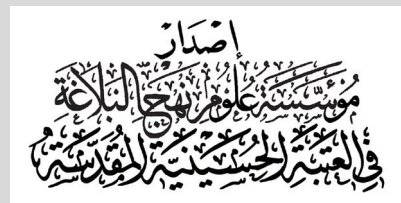 إصدار
مؤسسة علوم نهج البلاغة
في العتبة الحسينية المقدسة